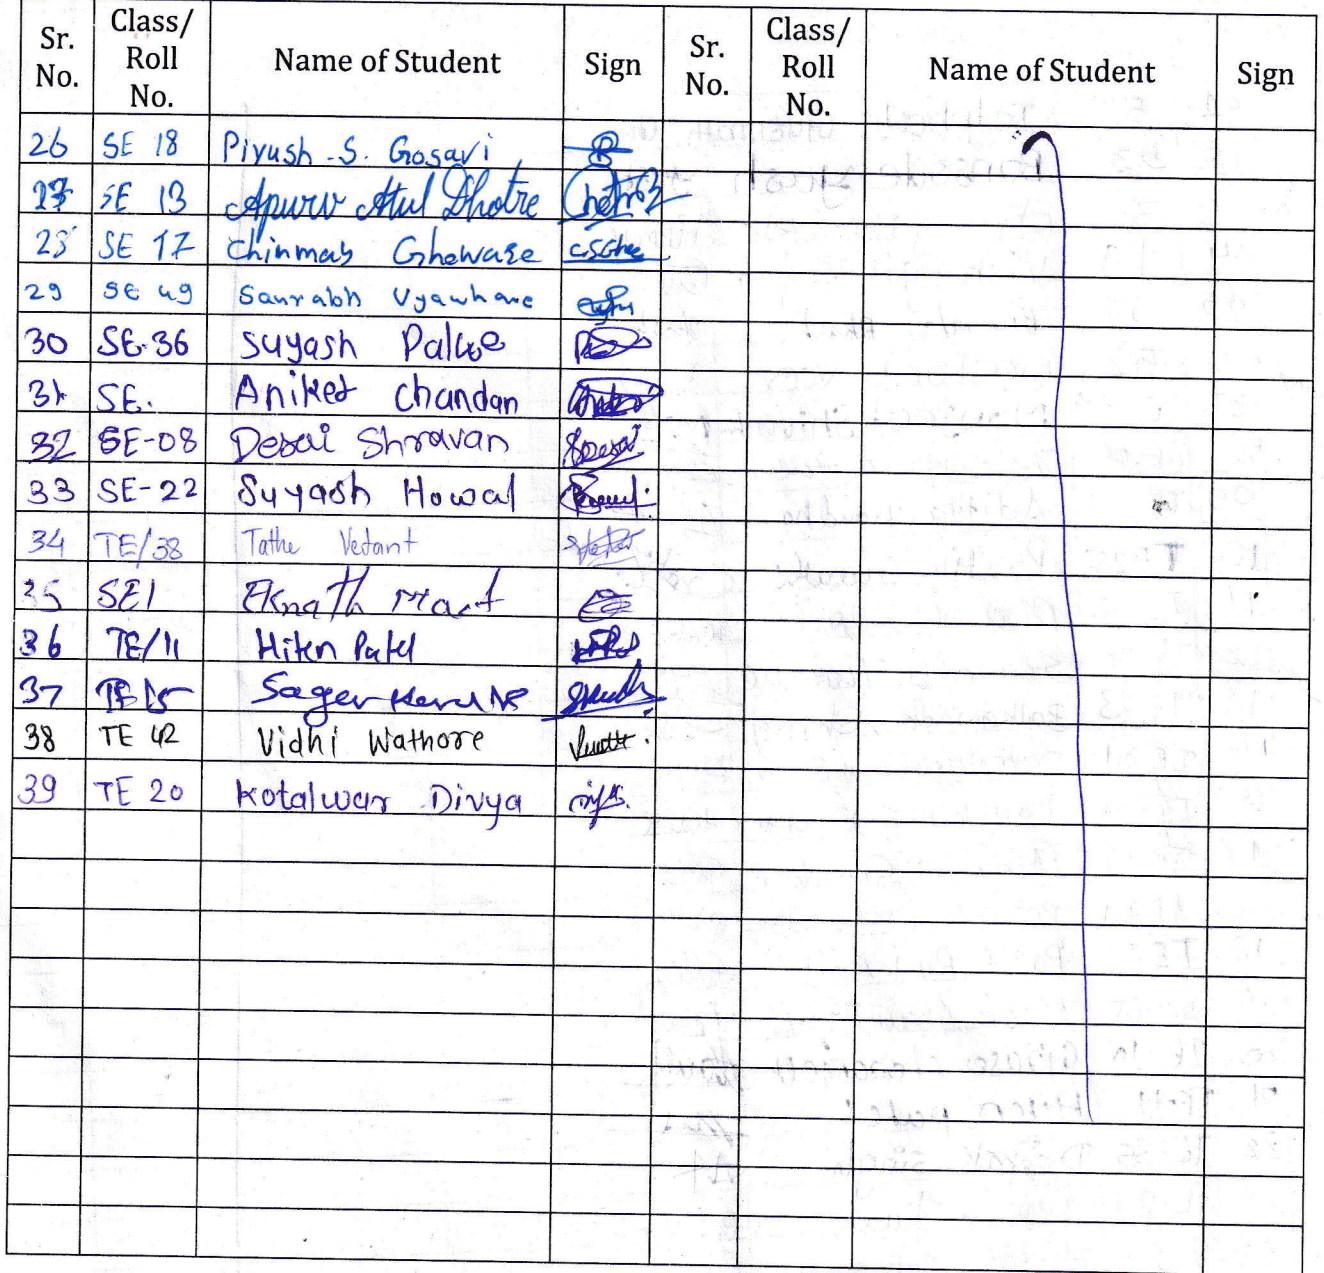 Sr. No. Class/ Roll No. Name of Student Sign Sr. No. Class/ Roll No. Name of Student Sign
26 SE 18 Piyush .S. Gosavi
27 SE 13 Apurv Atul Dhotre
28 SE 17 Chinmay Gheware
29 SE 49 Saurabh Vyawhare
30 SE-36 Suyash
31 SE. Aniket Chandan
32 SE-08 Desai Shravan
33 SE-22 Suyash Howal
34 TE/38 Tathe Vedant
35 SE1 Eknath
36 TE/11 Hiten Patel
37 Sager
38 TE 42 Vidhi Wathore
39 TE 20 Kotalwar Divya